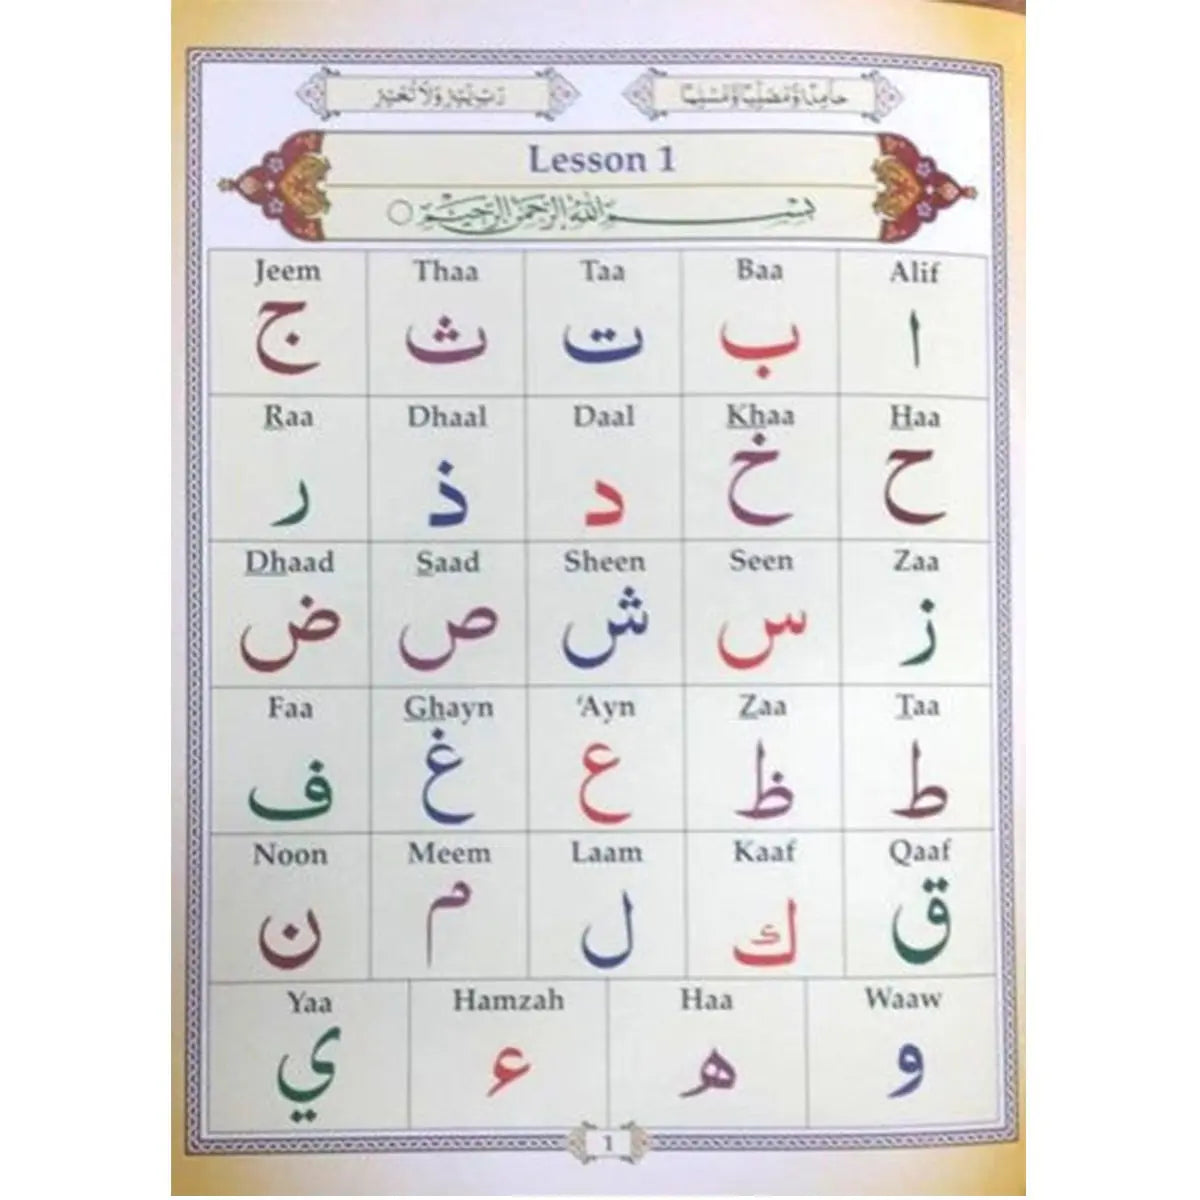 حَامِدًا وَّمُصَلِّيًا وَّمُسْلِمًا
رَبِّ يَسِّرْ وَلَا تُعَسِّرْ
Lesson 1
بِسْمِ اللّٰهِ الرَّحْمٰنِ الرَّحِيْمِ ○
Jeem Thaa Taa Baa Alif
ا ب ت ث ج
Raa Dhaal Daal Khaa Haa
ح خ د ذ ر
Dhaad Saad Sheen Seen Zaa
ز س ش ص ض
Faa Ghayn ‘Ayn Zaa Taa
ط ظ ع غ ف
Noon Meem Laam Kaaf Qaaf
ق ك ل م ن
Yaa Hamzah Haa Waaw
و ه ء ي
1